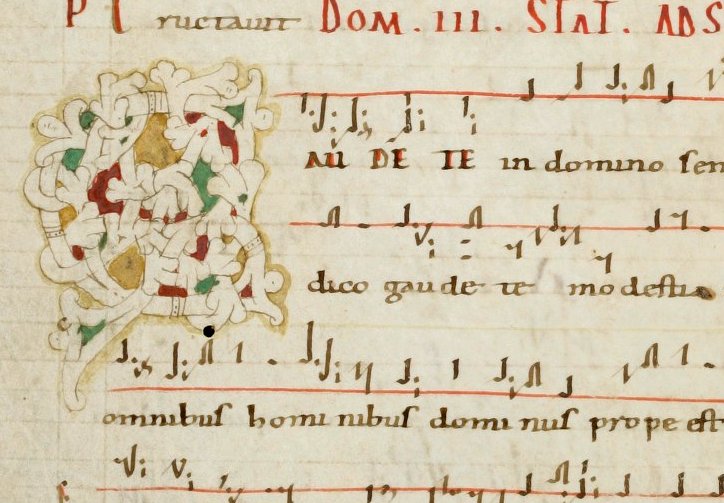 ructauit DOM. III. STAT. ADS
GAU DE TE in domino sem
dico gaude te modestia
omnibus homi nibus domi nus prope est